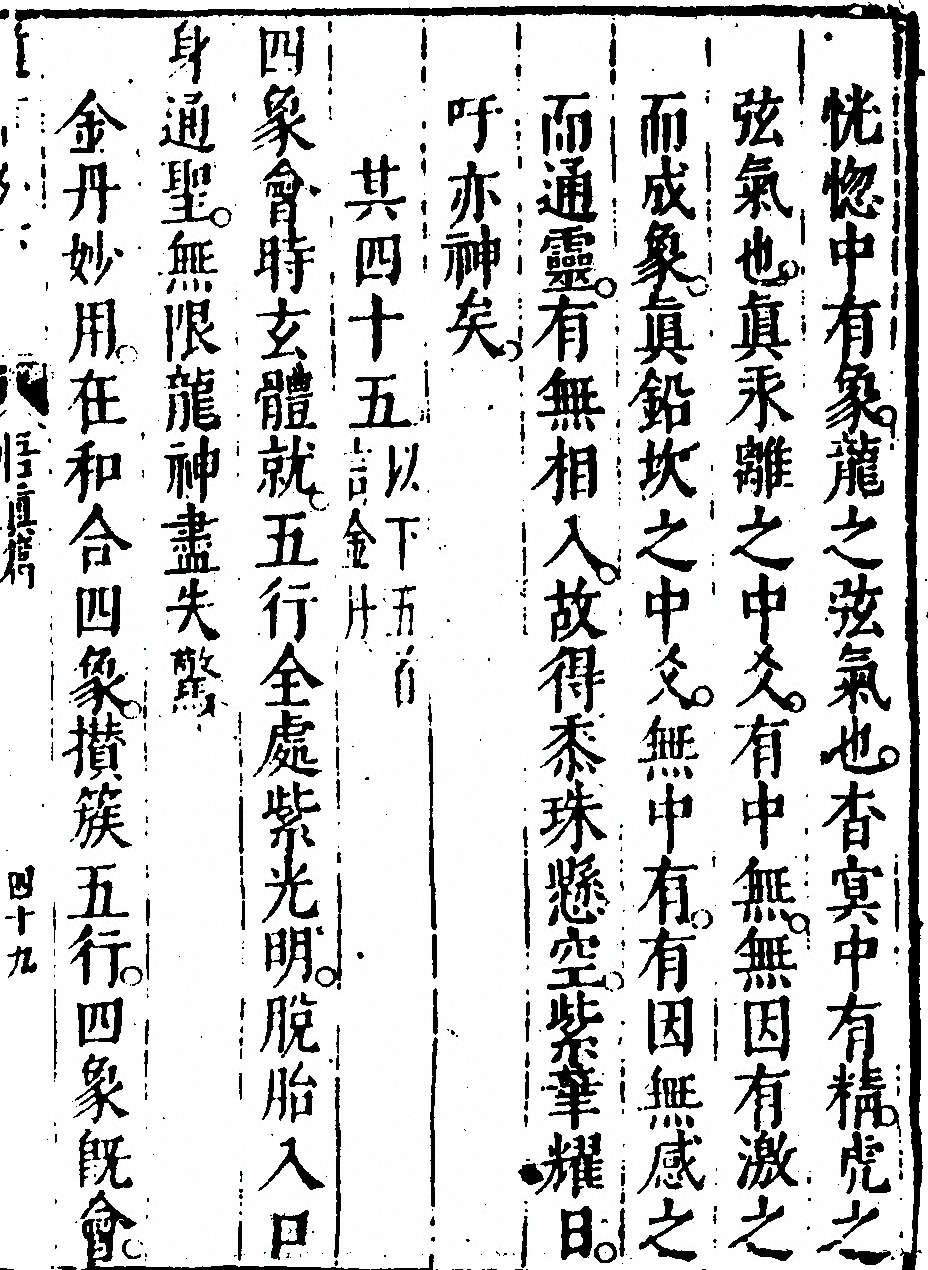 恍惚中有象龍之弦氣也杳㝠中有精虎之
弦氣也眞汞離之中爻有中無無因有激之
而成象眞鉛坎之中爻無中有有因無感之
而通靈有無相入故得黍珠懸空紫華耀日
吁亦神矣
其四十五
以下五首
言金丹
四象會時玄體就五行全處紫光明脫胎入口
身通聖無限龍神盡失驚
金丹妙用在和合四象攢簇五行四象既會
悟真篇
四十九